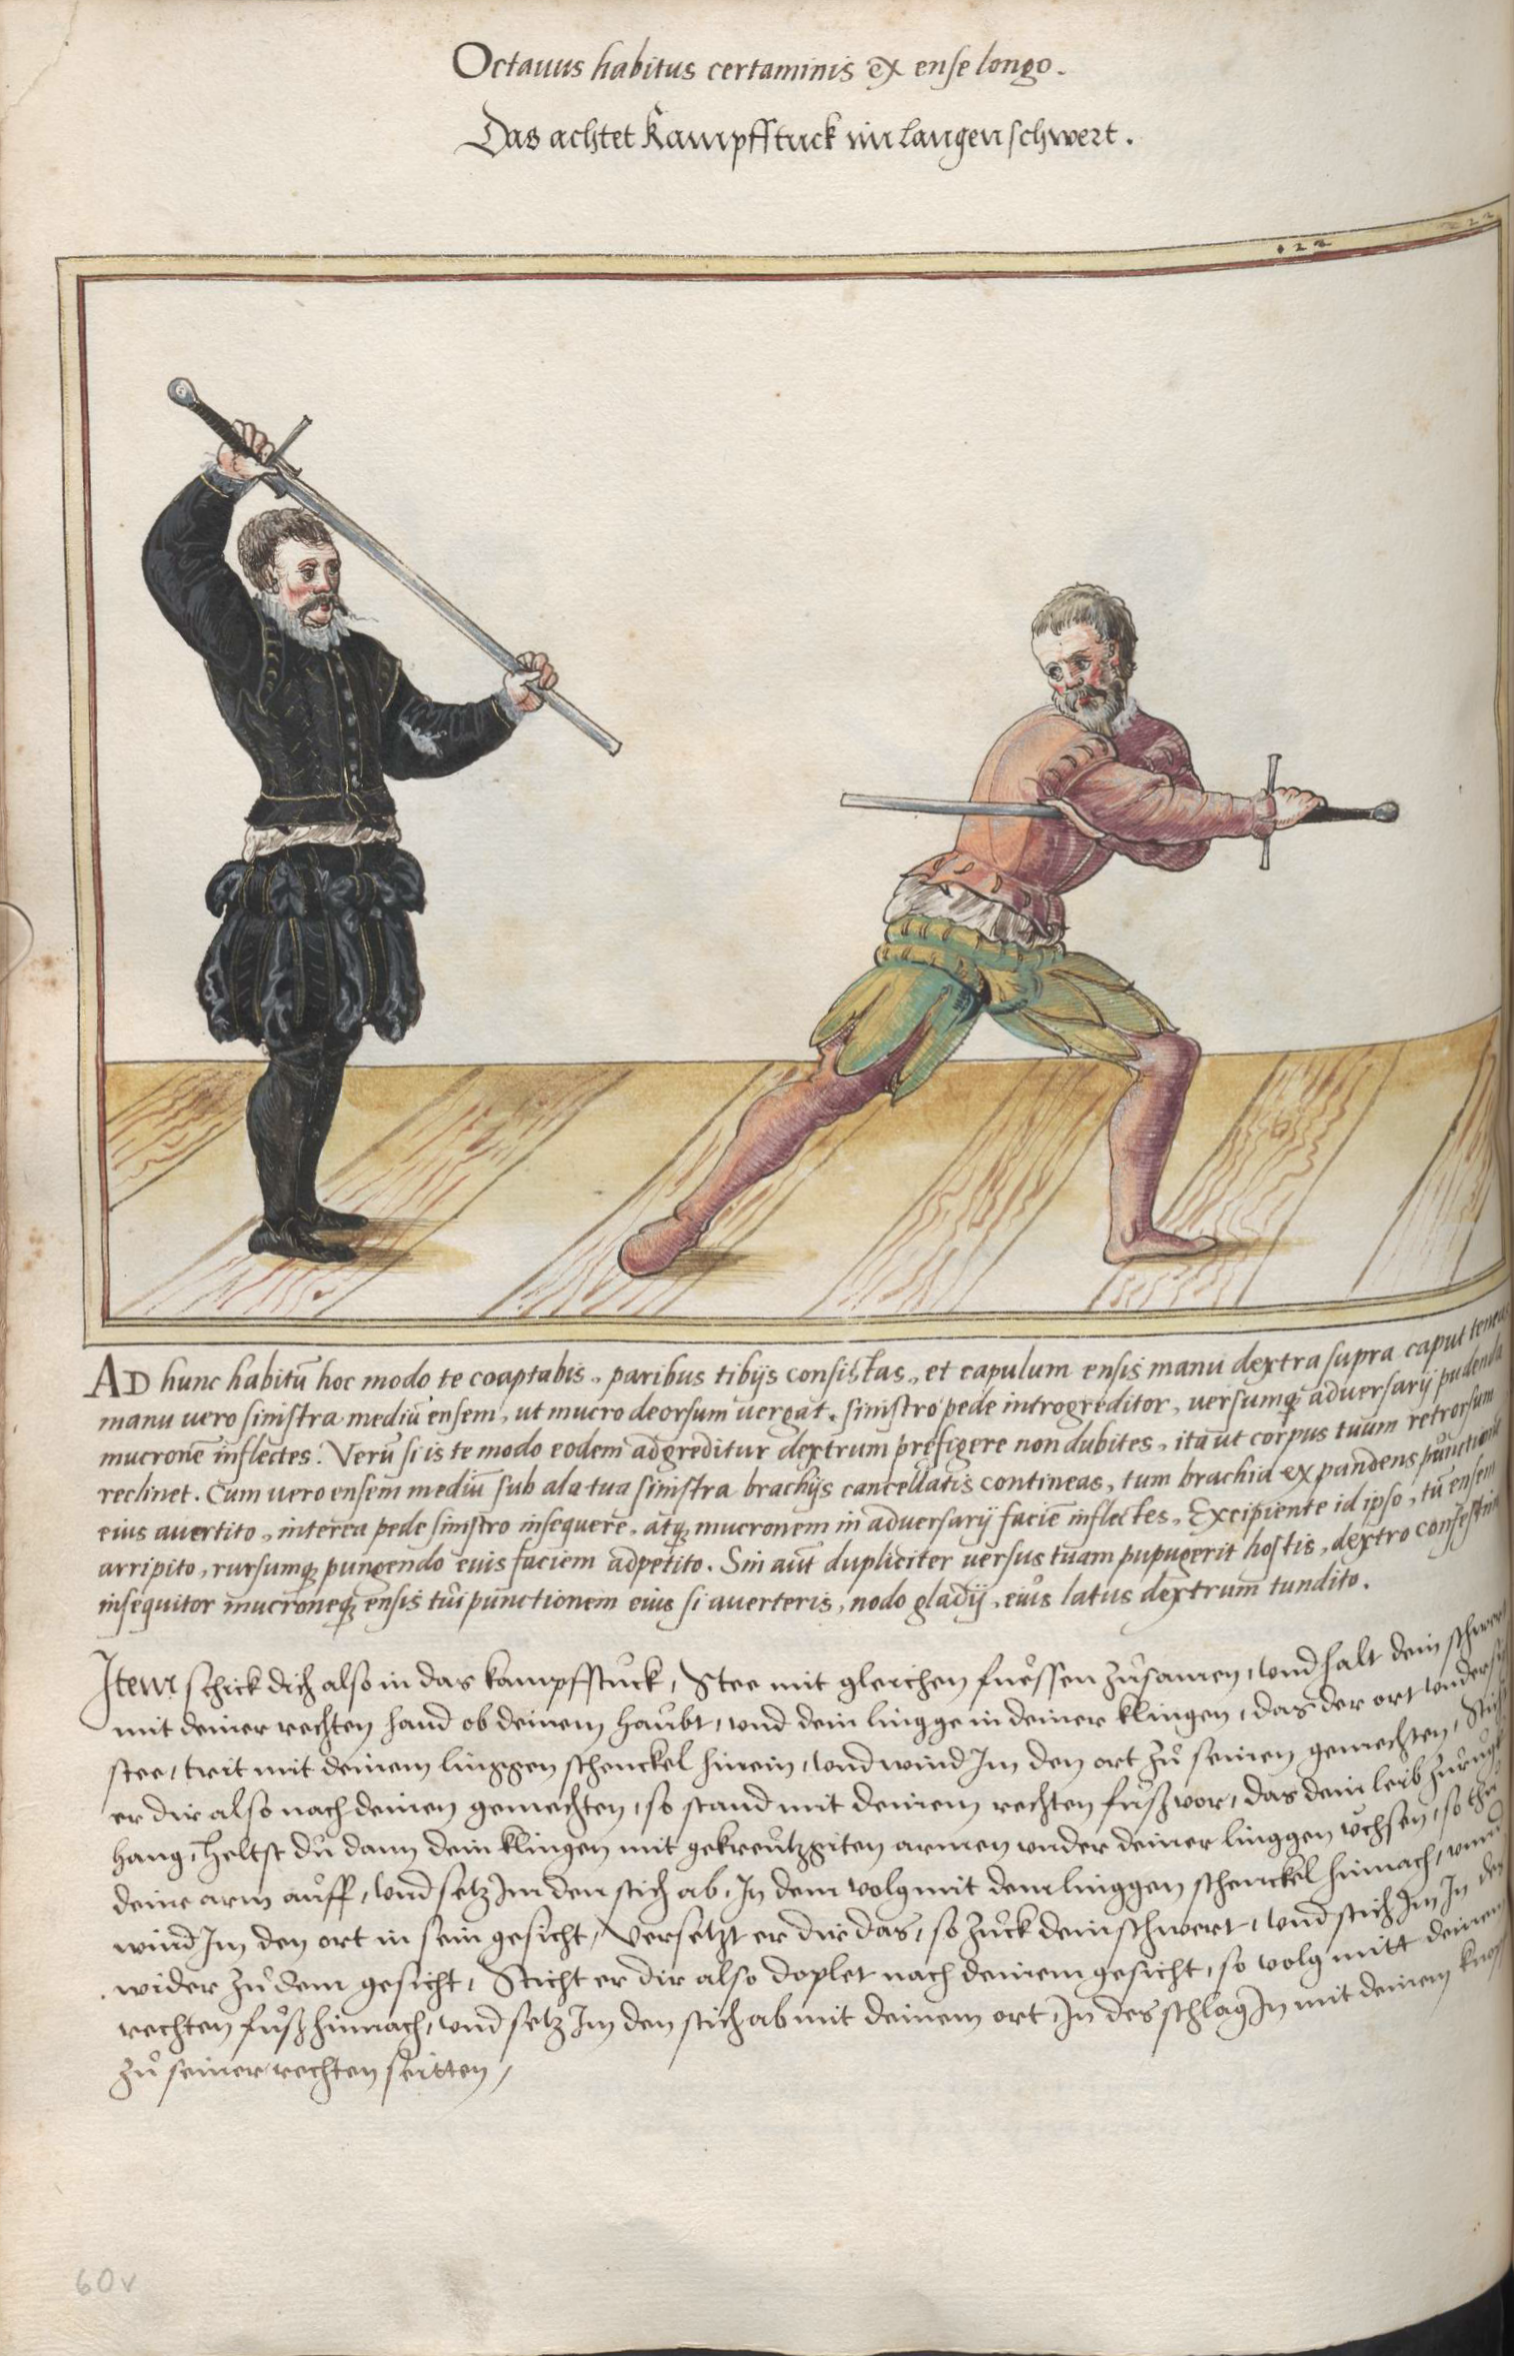 Octauus habitus certaminis ex ense longo.
Das achtet Kampfstuck im langen schwert.
122
AD hunc habitũ hoc modo te coaptabis, paribus tibijs consistas, et capulum ensis manu dextra supra caput teneas
manu vero sinistra mediũ ensem, ut mucro deorsum uergat. sinistro pede introgreditor, versumq; aduersarij pudenda
mucronẽ inflectes. Verũ si is te modo eodem adgreditur dextrum prefigere non dubites, ita ut corpus tuum retrorsum
reclinet. Cum uero ensem mediũ sub ala tua sinistra brachijs cancellatis contineas, tum brachia expandens punctionẽ
eius auertito, interea pede sinistro insequere, atq; mucronem in aduersarij faciẽ inflectes. Excipiente id ipso, tũ ensem
arripito, rursumq; pungendo euis faciem adpetito. Sin aũt dupliciter versus tuam pupugerit hostis, dextro confestim
insequitor mucroneq; ensis tui punctionem eius si auerteris, nodo gladij, eius latus dextrum tundito.
Item schick dich also in das kampfstuck, Stee mit gleichen fuessen zůsamen, vnd halt dein schwert
mit deiner rechten hand ob deinem haubt, vnd dein lingge in deiner klingen, das der ort vndersich
stee, trit mit deinem linggen schenckel hinein, vnd wind Im den ort zů seinen gemechten, Sticht
er dir also nach deinen gemechten, so stand mit deinem rechten fůß vor, das dein leib zurugk
hang, heltst du dann dein klingen mit gekreutzgiten armen vnder deiner linggen vchsen, so thů
deine arm auff, vnd setz Im den stich ab, In dem volg mit dem linggen schenckel hinnach, vnnd
wind Im den ort in sein gesicht, Versetzt er dir das, so zuck dein schwert, vnd stich Im In dem
wider zů dem gesicht, Sticht er dir also doplet nach deinem gesicht, so volg mitt deinem
rechten fůß hinnach, vnd setz Im den stich ab mit deinem ort, In des schlag In mit deinem knopf
zů seiner rechten seitten,
60v